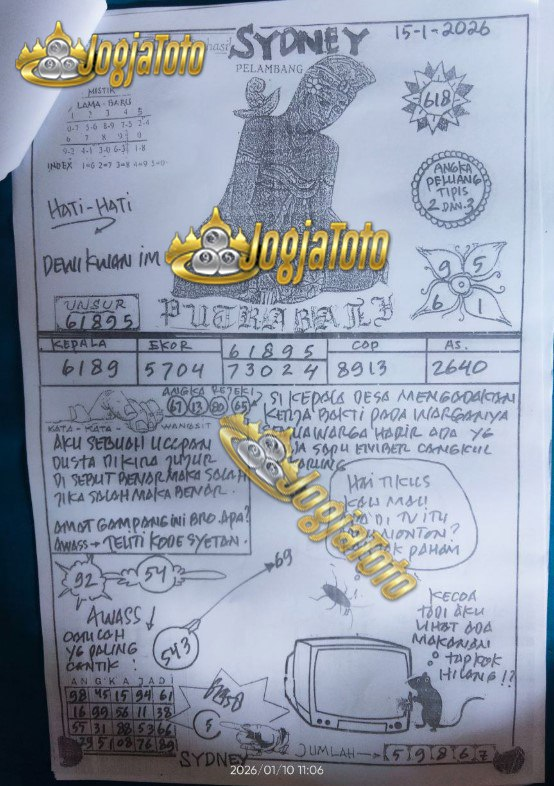 JogjaToto
SYDNEY
15-1-2026
PELAMBANG
MISTIK
LAMA - BARU
1 2 3 4 5
0-7 5-6 8-9 7-5 2-4
6 7 8 9 0
9-2 4-1 3-0 6-3 1-8
INDEX 1=6 2=7 3=8 4=9 5=0
618
ANGKA
PELUANG
TIPIS
2 DAN 3
HATI-HATI
DEWI KWAN IM
JogjaToto
9 5
6 1
UNSUR
61895
PUTRA BALI
KEPALA EKOR 61895 COP AS.
6189 5704 73024 8913 2640
ANGKA REJEKI
67 13 80 65
KATA - KATA WANGSIT
AKU SEBUAH UCAPAN
DUSTA DIKIRA JUJUR
DI SEBUT BENAR MAKA SALAH
JIKA SALAH MAKA BENAR.
AMAT GAMPANG INI BRO. APA?
AWASS → TELITI KODE SYETAN.
SI KEPALA DESA MENGADAKAN
KERJA BAKTI PADA WARGANYA
WARGA HADIR ADA YG
SAPU EMBER CANGKUL
JogjaToto
HAI TIKUS
KAU MAU
DI TV ITU
NONTON?
PAHAM
92
54
69
AWASS
YG PALING
CANTIK
543
KECOA
TADI AKU
LIHAT ADA
MAKANAN
TAPI KOK
HILANG!?
ANGKA JADI
98 45 15 94 61
16 99 56 11 38
55 31 88 53 66
29 51 08 76 89
5
SYDNEY
JUMLAH → 5 9 8 6 7
2026/01/10 11:06